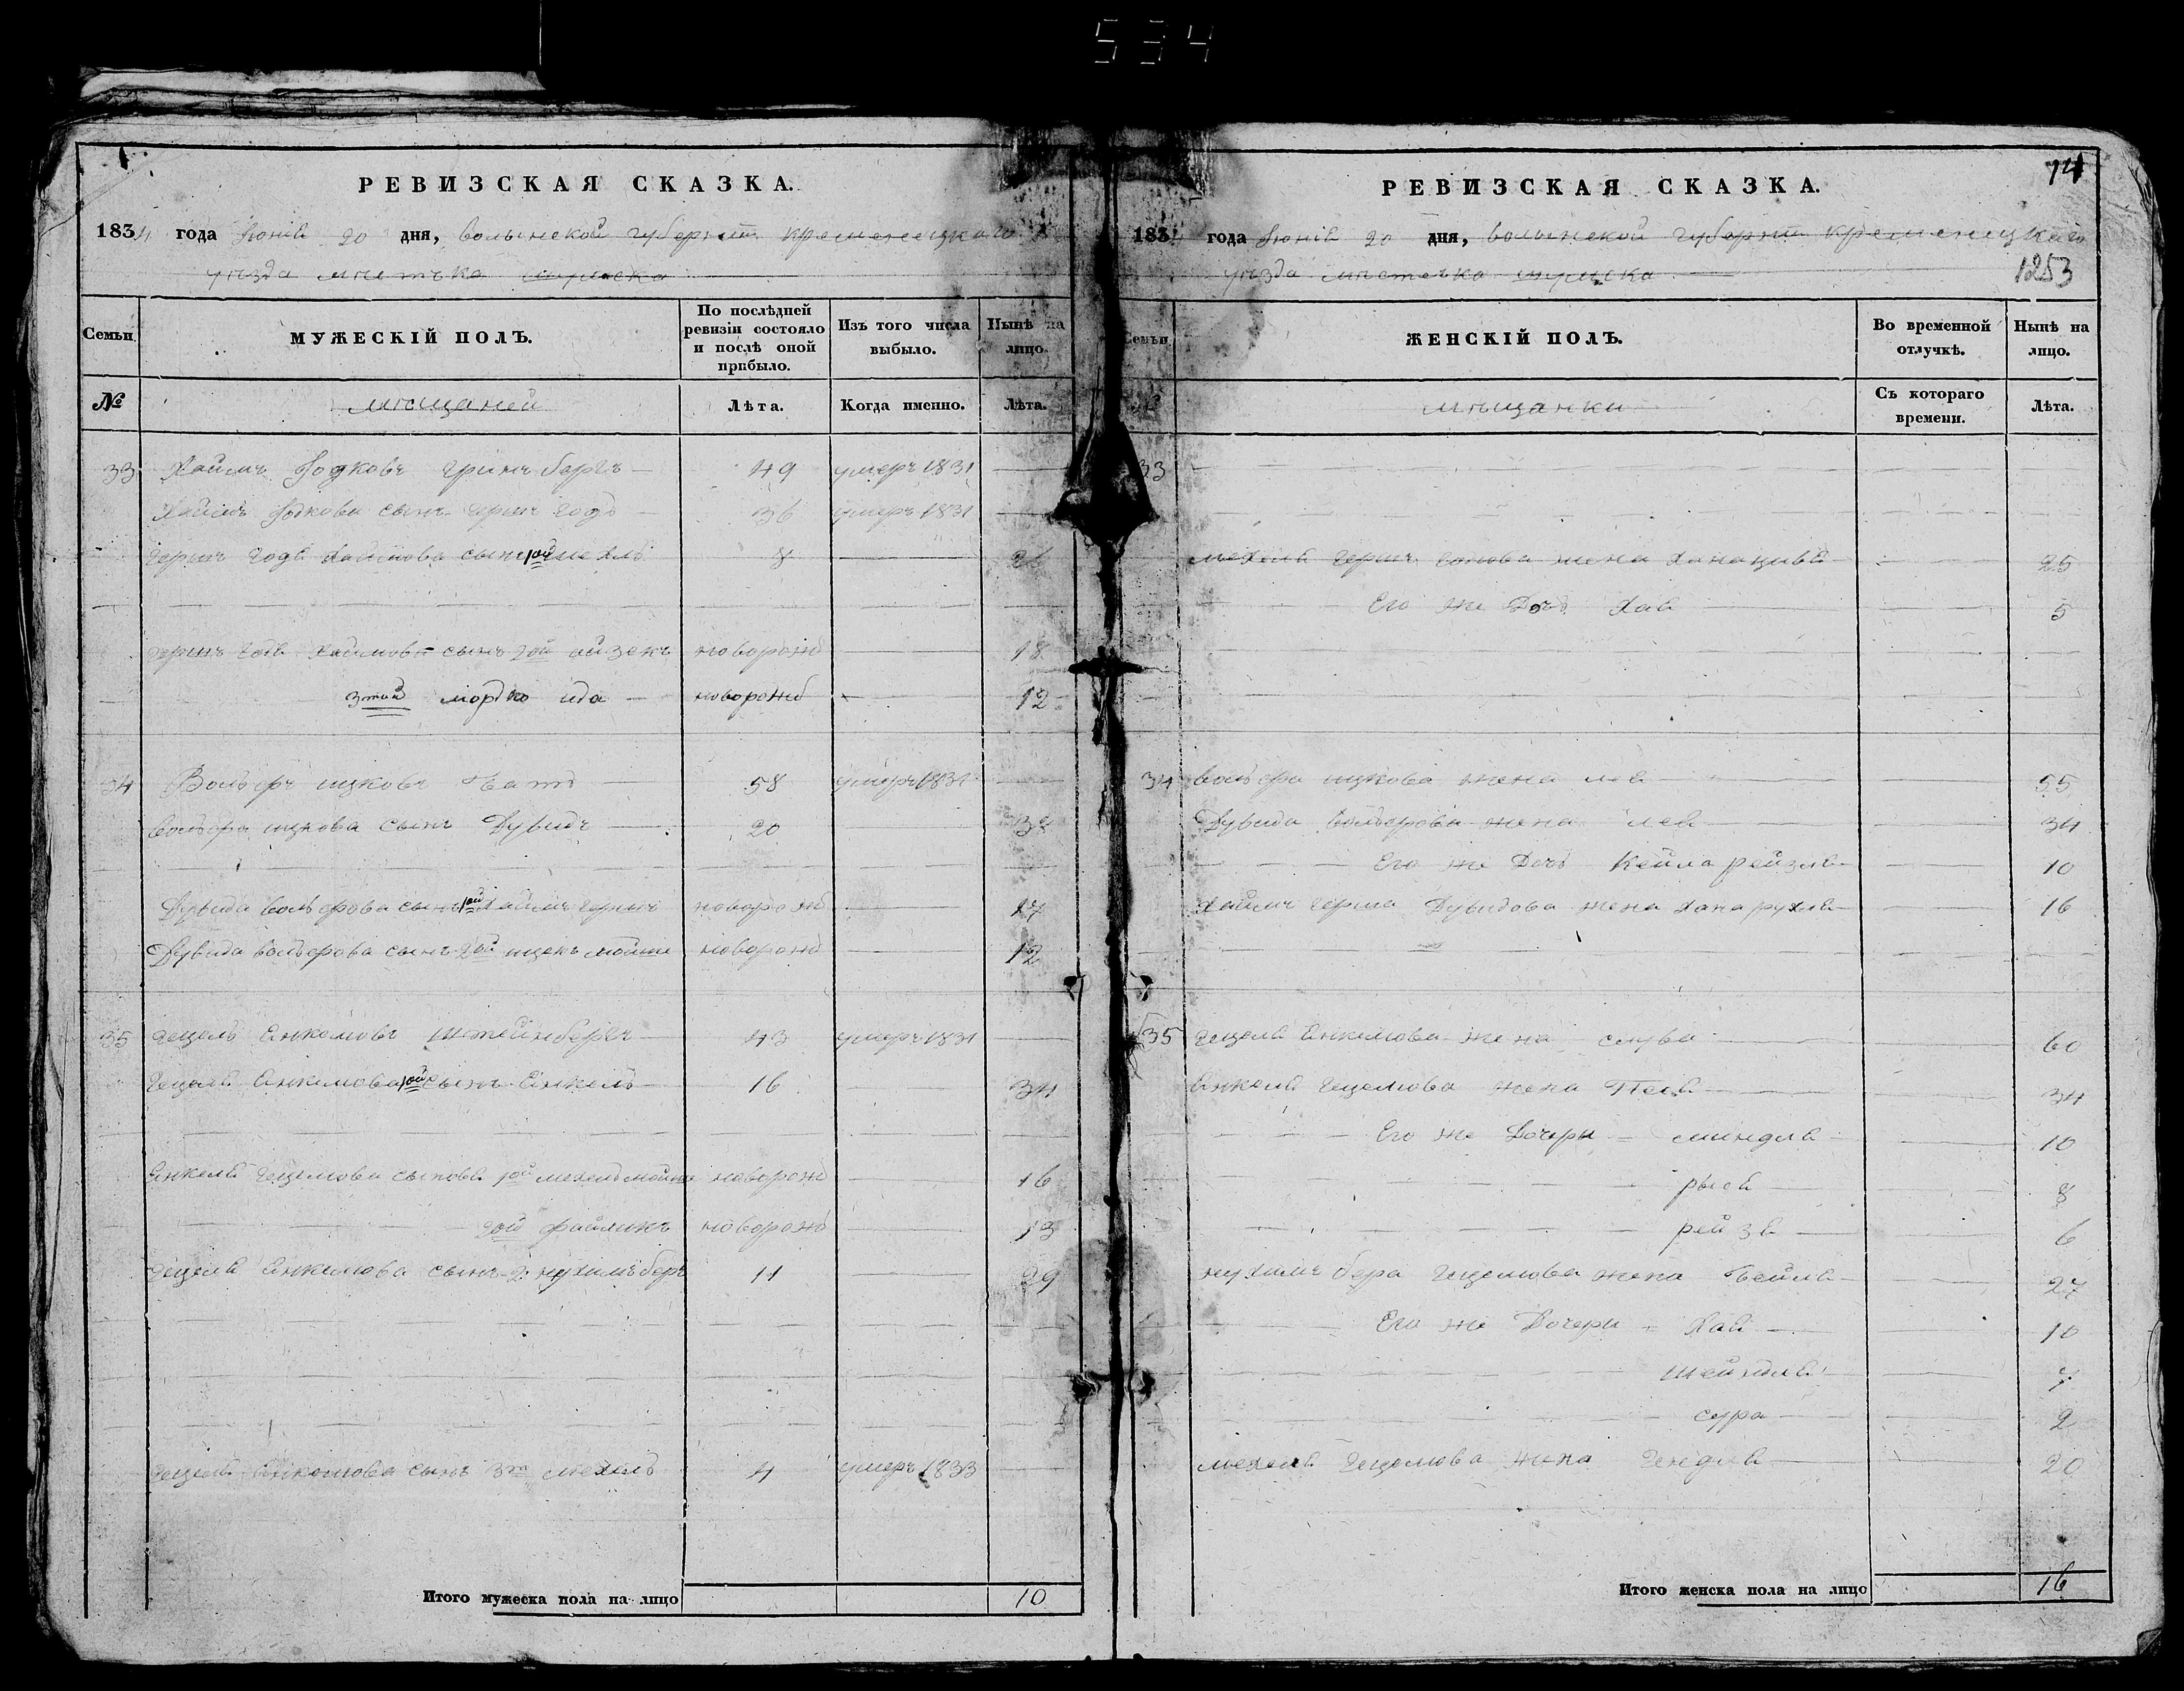 534
РЕВИЗСКАЯ СКАЗКА.
1834 года Юнія 20 дня, волынской губерніи кременецкаго
уѣзда мѣстечка шумска
Семьи
МУЖЕСКІЙ ПОЛЪ.
По послѣдней ревизіи состояло и послѣ оной прибыло.
Изъ того числа выбыло.
Нынѣ на лицо.
№
мѣщаней
Лѣта.
Когда именно.
Лѣта.
33 Хаимъ Іодковъ гринъбергъ 49 умеръ 1831
Хаима Іодкова сынъ гершъ 36 умеръ 1831
гершъ Хаимова сынъ 1ой мехль 8
гершъ Хаимова сынъ 2ой айзекъ новорожд 18
3тій мордко новорожд 12
34 Вольфъ ицковъ 58 умеръ 1831
вольфа ицкова сынъ Дувидъ 20
Дувида вольфова сынъ 1ой Хаимъ гершъ новорожд 17
Дувида вольфова сынъ 2ой ицекъ мойше новорожд 12
35 гецель Янкелювъ штейнбергъ 43 умеръ 1831
гецеля Янкелюва 1ой сынъ Янкель 16 34
Янкеля гецелюва сыновя 1ой новорожд 16
2ой новорожд 13
гецеля Янкелюва сынъ 2 нухимъ беръ 11 29
гецеля Янкелюва сынъ 3тій мехель 4 умеръ 1833
Итого мужеска пола на лицо 10
14
РЕВИЗСКАЯ СКАЗКА.
1834 года Юнія 20 дня, волынской губерніи кременецкаго
уѣзда мѣстечка шумска
1253
Семьи
ЖЕНСКІЙ ПОЛЪ.
Во временной отлучкѣ.
Нынѣ на лицо.
№
мѣщанки
Съ котораго времени.
Лѣта.
33
мехеля гершъ жена 25
Его же Дочь Хая 5
34 вольфа ицкова жена лея 55
Дувида вольфова жена лея 34
Его же Дочь Кейла рейзля 10
Хаимъ герша Дувидова жена Хана рухля 16
35 гецеля Янкелюва жена слува 60
Янкеля гецелюва жена 34
Его же Дочеры миндля 10
рыся 8
рейзя 6
нухимъ бера гецелюва жена бейля 27
Его же Дочери Хая 10
шейндля 7
сура 2
мехеля гецелюва жена гендля 20
Итого женска пола на лицо 16